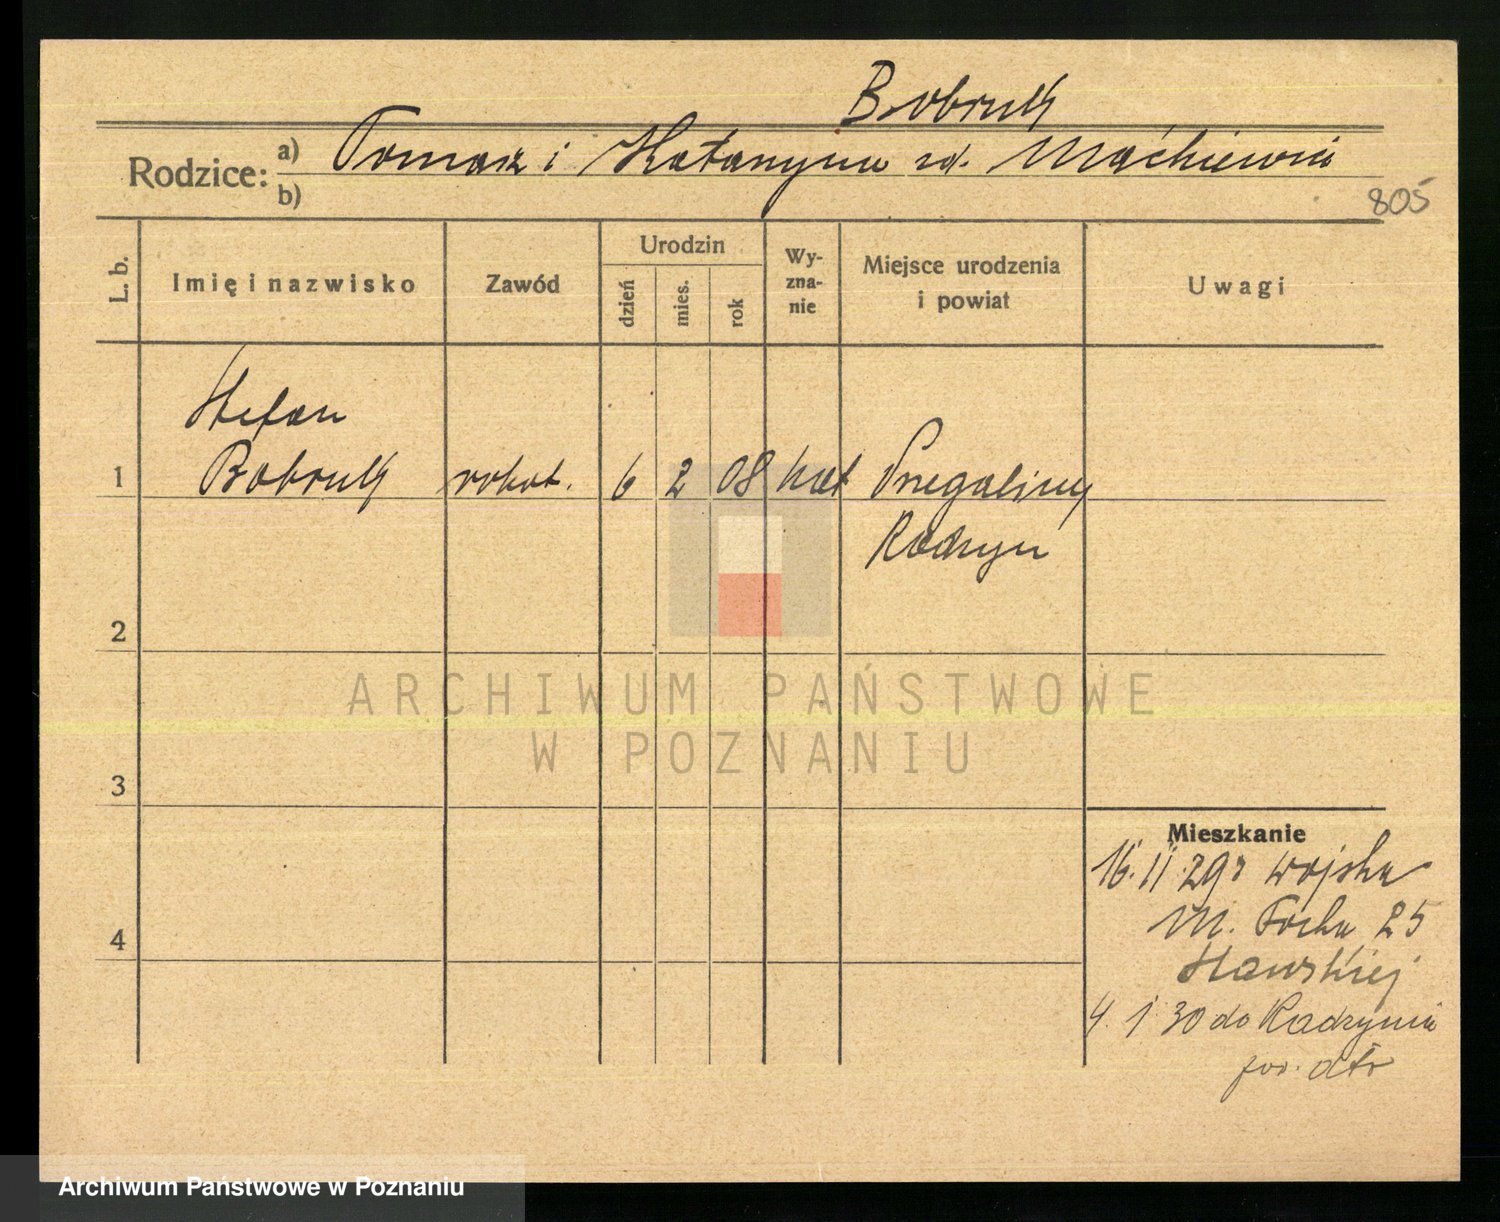 Bobruk
Rodzice: a) Tomasz i Katarzyna rd. Maćkiewicz
b)
805
L. b.
Imię i nazwisko
Zawód
Urodzin
dzień
mies.
rok
Wy-
zna-
nie
Miejsce urodzenia
i powiat
Uwagi
Stefan
1 Bobruk robot. 6 2 08 kat Przegaliny
Radzyn
2
3
4
Mieszkanie
16. 11. 29 r wojska
M. Focha 25
4. 1 30 do Radzynia
ARCHIWUM PAŃSTWOWE
W POZNANIU
Archiwum Państwowe w Poznaniu